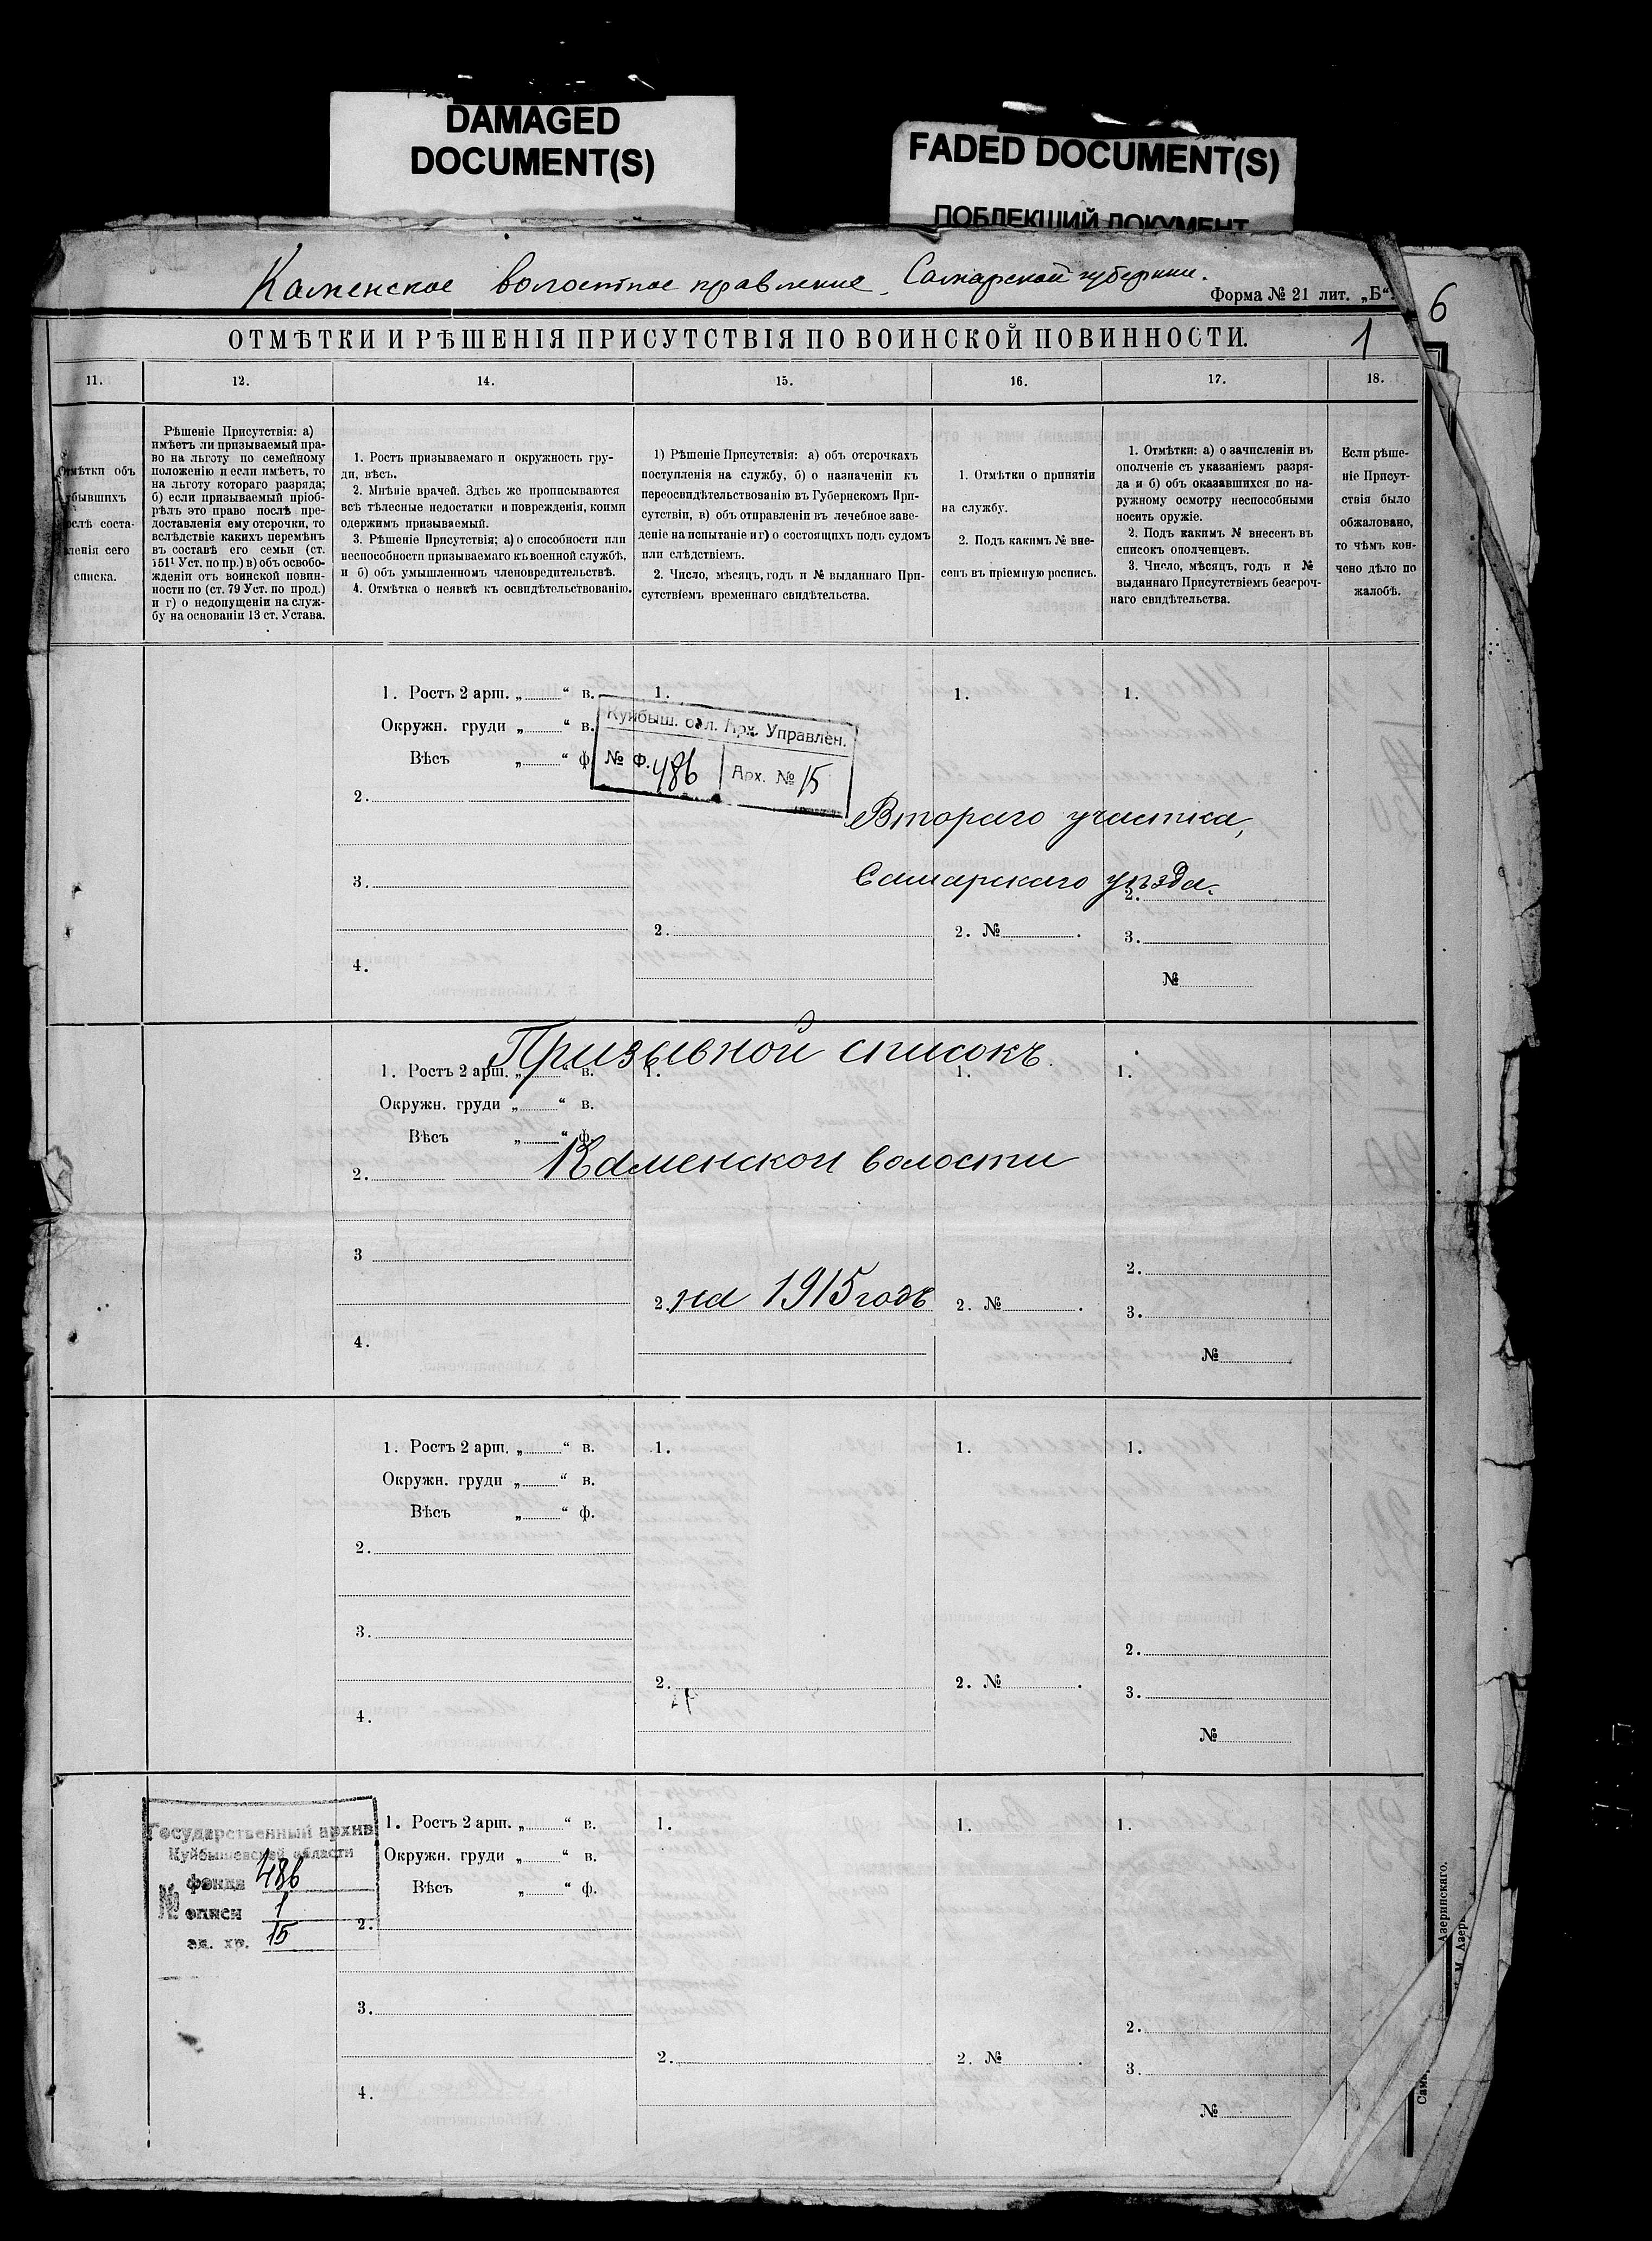 DAMAGED
DOCUMENT(S)
FADED DOCUMENT(S)
ПОБЛЕКШИЙ ДОКУМЕНТ
Каменское волостное правление, Самарской губернии.
Форма № 21 лит. „Б“.
6
ОТМѢТКИ И РѢШЕНІЯ ПРИСУТСТВІЯ ПО ВОИНСКОЙ ПОВИННОСТИ.
1
11.
12.
14.
15.
16.
17.
18.
Отмѣтки объ
убывшихъ
послѣ соста-
вленія сего
списка.
Рѣшеніе Присутствія: а)
имѣетъ ли призываемый пра-
во на льготу по семейному
положенію и если имѣетъ, то
на льготу котораго разряда;
б) если призываемый пріоб-
рѣлъ это право послѣ пре-
доставленія ему отсрочки, то
вслѣдствіе какихъ перемѣнъ
въ составѣ его семьи (ст.
151¹ Уст. по пр.) в) объ освобо-
жденіи отъ воинской повин-
ности по (ст. 79 Уст. по прод.)
и г) о недопущеніи на служ-
бу на основаніи 13 ст. Устава.
1. Ростъ призываемаго и окружность гру-
ди, вѣсъ.
2. Мнѣніе врачей. Здѣсь же прописываются
всѣ тѣлесные недостатки и поврежденія, коими
одержимъ призываемый.
3. Рѣшеніе Присутствія; а) о способности или
неспособности призываемаго къ военной службѣ,
и б) объ умышленномъ членовредительствѣ.
4. Отмѣтка о неявкѣ къ освидѣтельствованію.
1) Рѣшеніе Присутствія: а) объ отсрочкахъ
поступленія на службу, б) о назначеніи къ
переосвидѣтельствованію въ Губернскомъ При-
сутствіи, в) объ отправленіи въ лечебное заве-
деніе на испытаніе и г) о состоящихъ подъ судомъ
или слѣдствіемъ.
2. Число, мѣсяцъ, годъ и № выданнаго При-
сутствіемъ временнаго свидѣтельства.
1. Отмѣтки о принятіи
на службу.
2. Подъ какимъ № вне-
сенъ въ пріемную роспись.
1. Отмѣтки: а) о зачисленіи въ
ополченіе съ указаніемъ разря-
да и б) объ оказавшихся по на-
ружному осмотру неспособными
носить оружіе.
2. Подъ какимъ № внесенъ въ
списокъ ополченцевъ.
3. Число, мѣсяцъ, годъ и №
выданнаго Присутствіемъ безсроч-
наго свидѣтельства.
Если рѣше-
ніе Присут-
ствія было
обжаловано,
то чѣмъ кон-
чено дѣло по
жалобѣ.
1. Ростъ 2 арш. „ “ в.
Окружн. груди „ “ в.
Вѣсъ „ “ ф.
2.
3.
4.
1.
2.
1.
2. №
1.
2.
3.
№
Куйбыш. обл. Арх. Управлен.
№ Ф. 486 Арх. № 15
Второго участка,
Самарскаго уѣзда.
Призывной списокъ
1. Ростъ 2 арш. „ “ в.
Окружн. груди „ “ в.
Вѣсъ „ “ ф.
2.
3
4.
1.
2.
1.
2. №
1.
2.
3.
№
Каменской волости
на 1915 годъ
1. Ростъ 2 арш. „ “ в.
Окружн. груди „ “ в.
Вѣсъ „ “ ф.
2.
3.
4.
1.
2.
1.
2. №
1.
2.
3.
№
Государственный архив
Куйбышевской области
№
фонда 486
описи 1
ед. хр. 15
1. Ростъ 2 арш. „ “ в.
Окружн. груди „ “ в.
Вѣсъ „ “ ф.
2.
3.
4.
1.
2.
1.
2. №
1.
2.
3.
№
Азеринскаго.